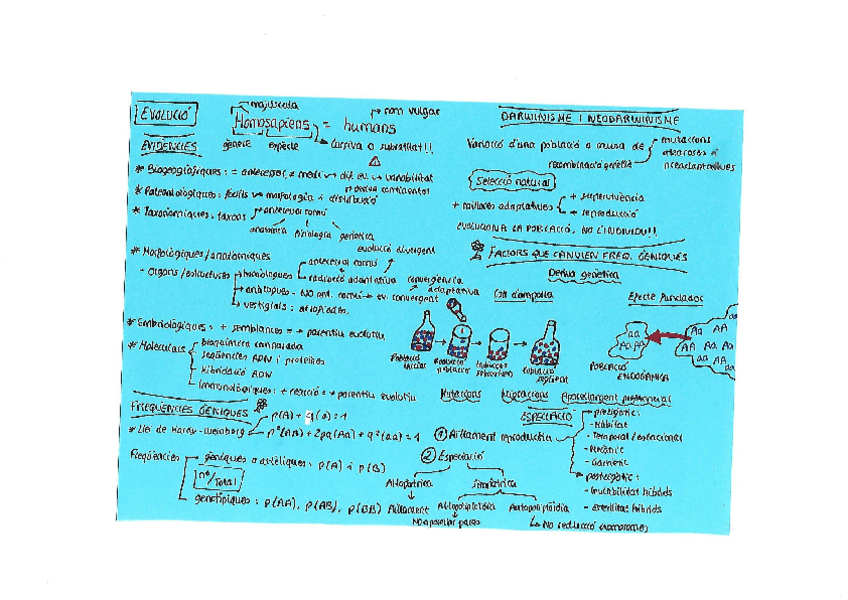 EVOLUCIÓ
majúscula
Homosapiens = humans
nom vulgar
gènere espècie
cursiva o subratllat!!
EVIDÈNCIES
* Biogeogràfiques: = antecessor, ≠ medi → dif. ev. → variabilitat
* Paleontològiques: fòssils → morfologia i distribució
* Taxonòmiques: taxons
antecessor comú
anatomia fisiologia genètica
* Morfològiques/anatòmiques
evolució divergent
- Òrgans/estructures
homòlogues
antecessor comú
radiació adaptativa
convergència adaptativa
anàlogues - NO ant. comú → ev. convergent
vestigials: atrofiades
* Embriològiques: + semblances = + parentiu evolutiu
* Moleculars
bioquímica comparada
seqüències ADN i proteïnes
hibridació ADN
immunològiques: + reacció = + parentiu evolutiu
FREQÜÈNCIES GÈNIQUES
* Llei de Hardy-Weinberg
p(A) + q(a) = 1
p²(AA) + 2pq(Aa) + q²(aa) = 1
Freqüències
gèniques o al·lèliques: p(A) i p(B)
nº/Total
genotípiques: p(AA), p(AB), p(BB)
DARWINISME I NEODARWINISME
Variació d'una població a causa de
mutacions
atzaroses i
preadaptatives
recombinació genètica
Selecció natural
+ millores adaptatives
+ supervivència
+ reproducció
EVOLUCIONA LA POBLACIÓ, NO L'INDIVIDU!!
FACTORS QUE CANVIEN FREQ. GÈNIQUES
Deriva genètica
Coll d'ampolla
Efecte fundador
Població inicial
Reducció població
Individus
Població
aa
Aa AA
Aa AA
AA Aa Aa
aa AA
POBLACIÓ
ENDOGÀMICA
Mutacions Migracions Aparellament preferencial
ESPECIACIÓ
① Aïllament reproductiu
prezigòtic:
- Hàbitat
- Temporal/estacional
- Gamètic
postzigòtic:
- Inviabilitat híbrids
- Esterilitat híbrids
② Especiació
Al·lopàtrica
Simpàtrica
Aïllament
Al·lopoliploïdia
Autopoliploïdia
No reducció cromosomes